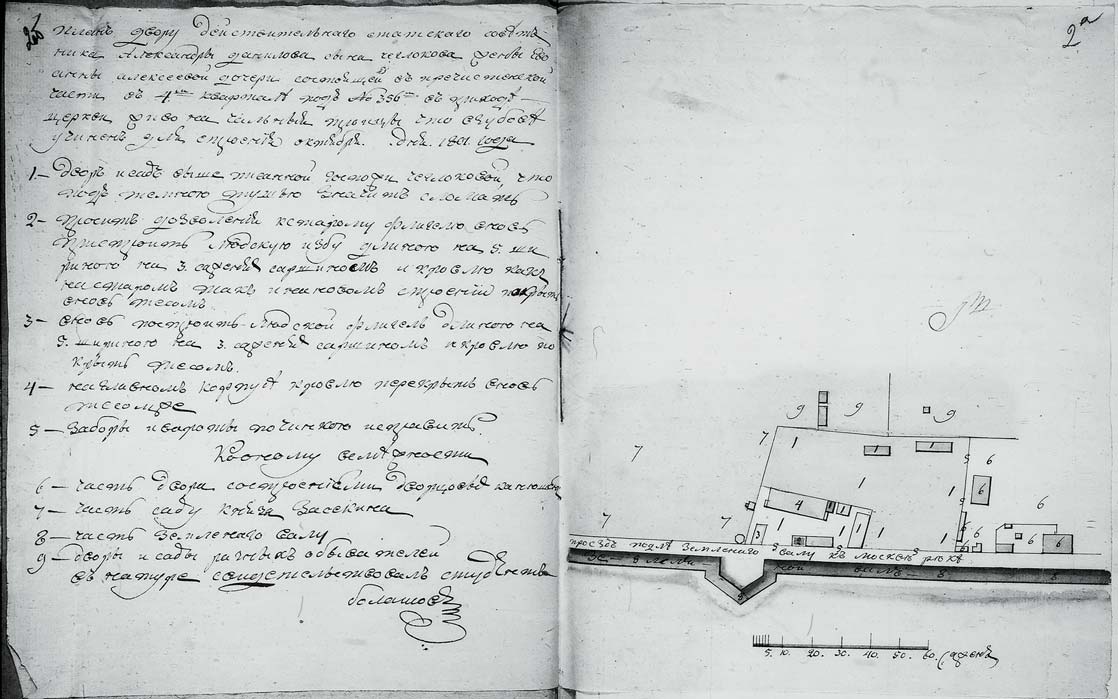 планъ двору действительнаго статскаго совет
ника Александры данилова сына чепокова жены Iво
анны алексеевой дочери состоящей въ пречистенской
части въ 4. кварталѣ подъ No 356 въ приходѣ
церкви живоначальныя троицы что въ зубовѣ
учиненъ для строенія октября. дня. 1801. года
1 — дворъ и садъ выше писанной госпожи чепоковой, что
подъ темною тушью значитъ сломать
2 — проситъ дозволенія к старому флигелю вновь
пристроить людскую избу длиною на 5. ши
риною на 3. сажени саршиномъ и кровлю какъ
на старомъ такъ и на новомъ строеніи покрыть
вновь тесомъ.
3 — вновь построить людской флигель длиною на
5. шириною на 3. сажени саршиномъ и кровлю по
крыть тесомъ.
4 — на главномъ корпусѣ кровлю перекрыть вновь
тесомже
5 — Заборы и вароты починкою исправить.
Ко оному смежности
6 — часть двора состроеніеми дворцовой канюшни
7 — часть саду князя Засекина
8 — часть Земленаго валу
9 — дворы и сады разныхъ обывателей
въ натуре свидетельствовалъ
2а
9 9 9
7 7 1 1 1 5 6
1 1 6
4 6
7 7 3 1 1 6
проездъ подле Земленаго валу къ москвѣ рѣкѣ
8 8 8
5. 10. 20. 30. 40. 50. 60. сажени